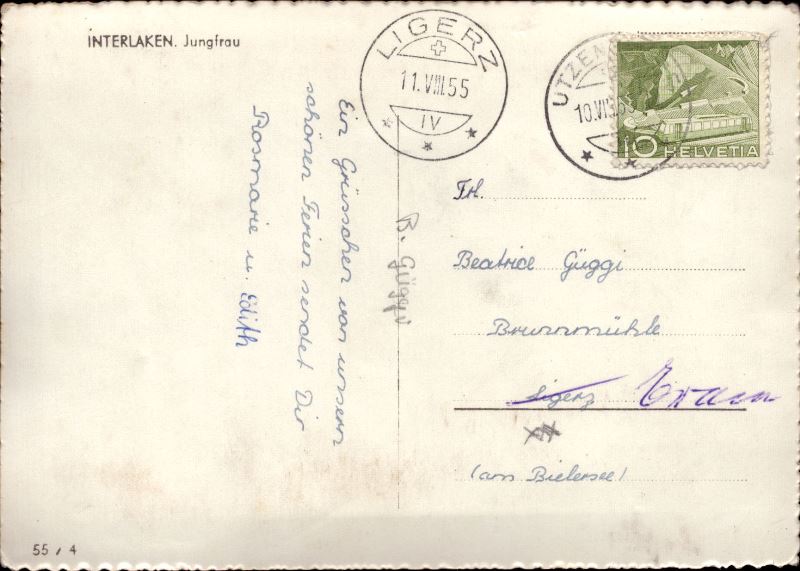 INTERLAKEN. Jungfrau
Ein Grüsschen von unsern
schönen Ferien sendet Dir
Rosmarie u. Edith
B. Güggi
LIGERZ
11.VIII.55
IV
UTZEN
10.VIII.55
10 HELVETIA
Frl.
Beatrice Güggi
Brunnmühle
Ligerz
(am Bielersee)
55 / 4